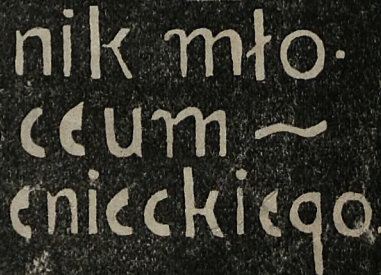 nik mło·
ceum ~
enieckiego.